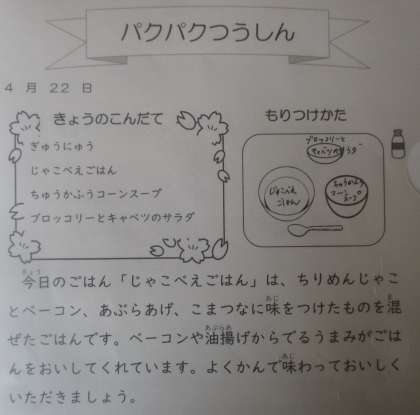 パクパクつうしん
4 月 22 日
きょうのこんだて
ぎゅうにゅう
じゃこべえごはん
ちゅうかふうコーンスープ
ブロッコリーとキャベツのサラダ
もりつけかた
ブロッコリーと
キャベツのサラダ
じゃこべえ
ごはん
ちゅうかふう
コーン
スープ
今日のごはん「じゃこべえごはん」は、ちりめんじゃこ
とベーコン、あぶらあげ、こまつなに味をつけたものを混
ぜたごはんです。ベーコンや油揚げからでるうまみがごは
んをおいしてくれています。よくかんで味わっておいしく
いただきましょう。